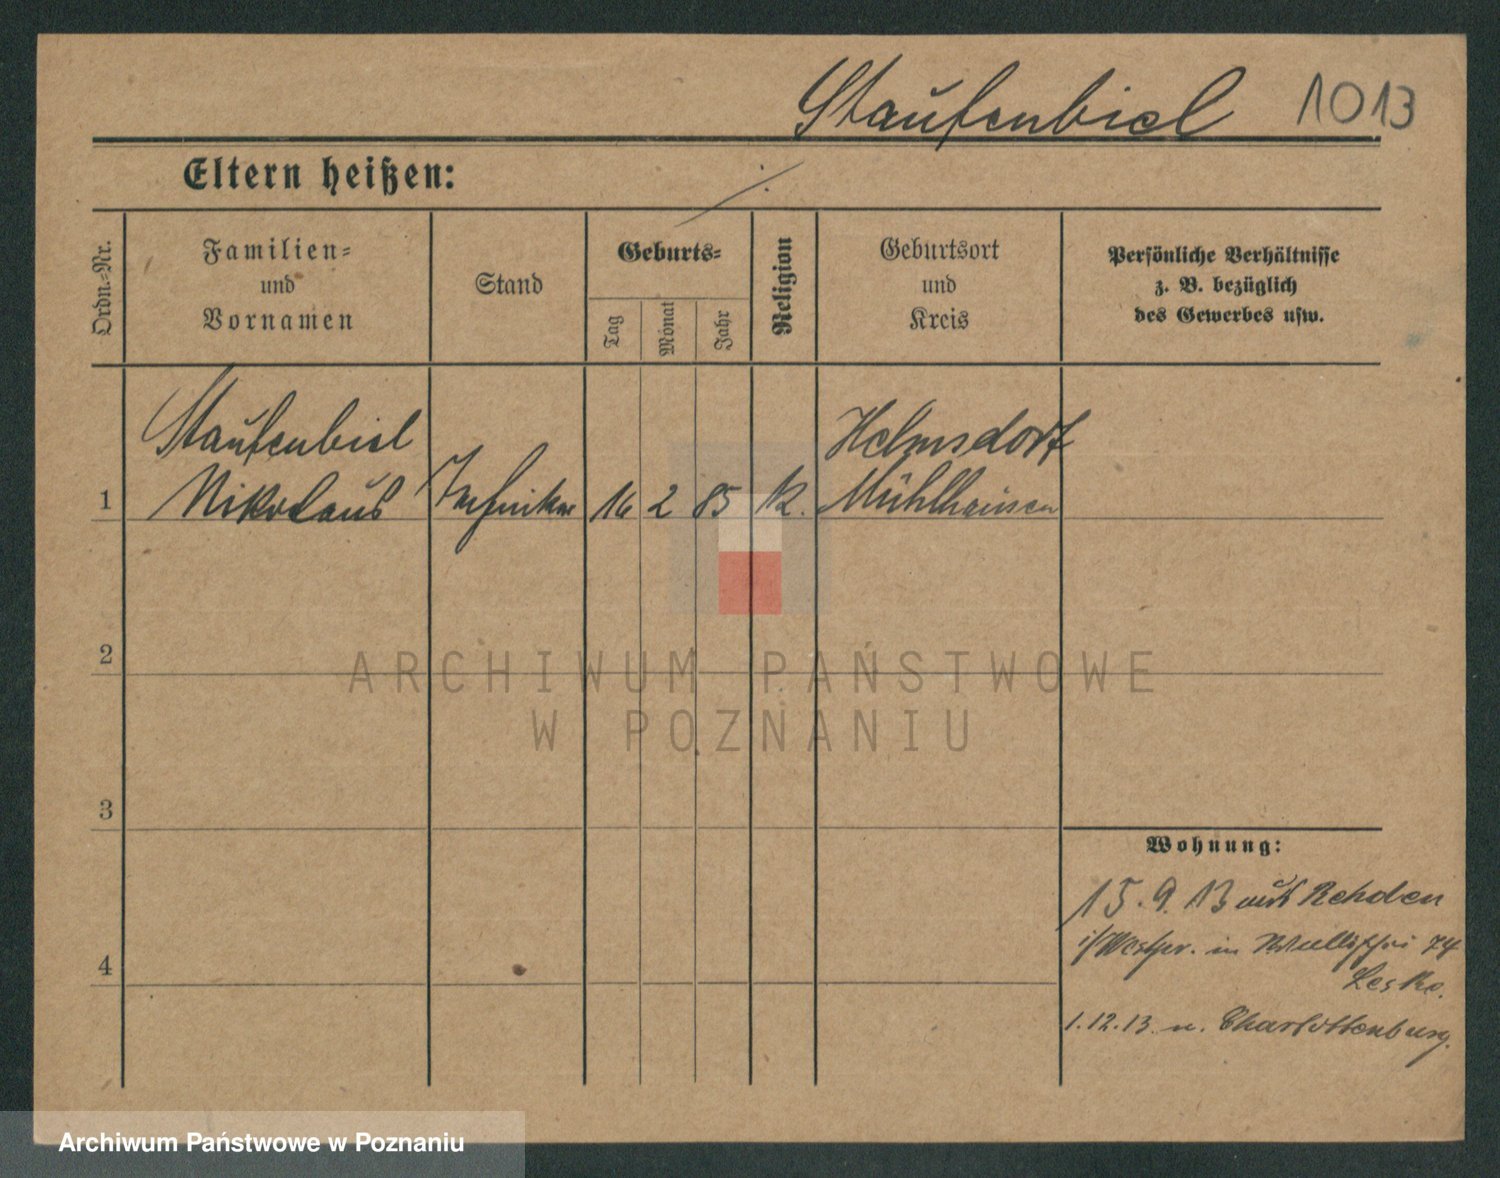 Staufenbiel 1013
Eltern heißen: ./.
Ordn.-Nr.
Familien-
und
Vornamen
Stand
Geburts-
Tag
Monat
Jahr
Religion
Geburtsort
und
Kreis
Persönliche Verhältnisse
z. B. bezüglich
des Gewerbes usw.
Staufenbiel Helmsdorf
1 Nikolaus Techniker 16 2 85 k. Mühlhausen
2
ARCHIWUM PAŃSTWOWE
W POZNANIU
3
Wohnung:
15.9.13 aus Rehden
i/Westpr. in 74
Leske.
4
1.12.13 n. Charlottenburg.
Archiwum Państwowe w Poznaniu